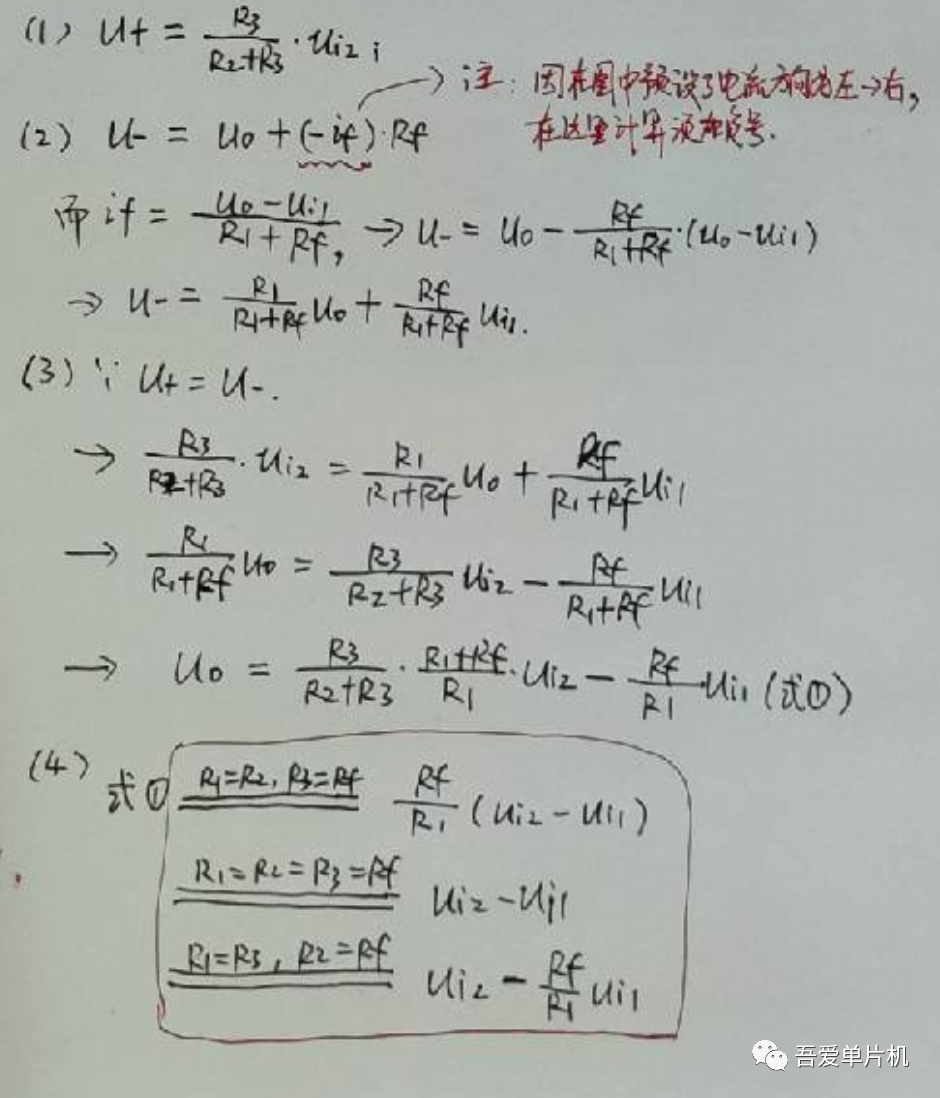 (1) U+ = R3/(R2+R3) · Ui2;
注: 因在图中预设了电流方向为左→右,
在这里计算须加负号.
(2) U- = U0 + (-if) · Rf
而 if = (U0-Ui1)/(R1+Rf), → U- = U0 - Rf/(R1+Rf) · (U0-Ui1)
→ U- = R1/(R1+Rf) U0 + Rf/(R1+Rf) Ui1.
(3) ∵ U+ = U-.
→ R3/(R2+R3) · Ui2 = R1/(R1+Rf) U0 + Rf/(R1+Rf) Ui1
→ R1/(R1+Rf) U0 = R3/(R2+R3) Ui2 - Rf/(R1+Rf) Ui1
→ U0 = R3/(R2+R3) · (R1+Rf)/R1 · Ui2 - Rf/R1 · Ui1 (式①)
(4) 式① R1=R2, R3=Rf Rf/R1 (Ui2-Ui1)
R1=R2=R3=Rf Ui2-Ui1
R1=R3, R2=Rf Ui2 - Rf/R1 Ui1
吾爱单片机